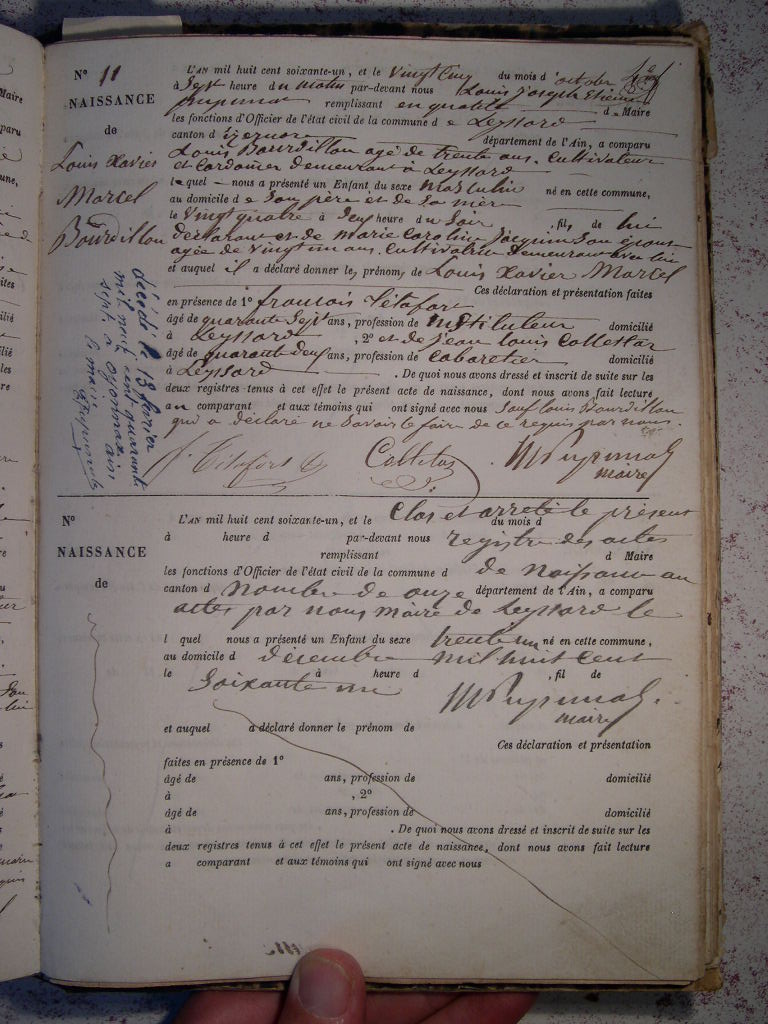 N° 11
NAISSANCE
de
Louis Xavier
Marcel
Bourdillon
L'AN mil huit cent soixante-un, et le Vingt Cinq du mois d'octobre
à Sept heure du matin par-devant nous Louis Joseph Etienne
Pupunat remplissant en qualité de Maire
les fonctions d'Officier de l'état civil de la commune de Leyssard
canton d'izernore département de l'Ain, a comparu
Louis Bourdillon agé de trente ans. Cultivateur
et Cordonier demeurant à Leyssard
lequel nous a présenté un Enfant du sexe masculin né en cette commune,
au domicile de Son père et de Sa mère
le Vingt quatre à Six heure du Soir, fils de lui
déclarant et de Marie Caroline Jacquin Son épouse
agée de Vingt un ans. Cultivatrice demeurant avec lui
et auquel il a déclaré donner les prénoms de Louis Xavier Marcel
Ces déclaration et présentation faites
en présence de 1° francois Tétafort
âgé de quarante Sept ans, profession de instituteur domicilié
à Leyssard, 2° et de Jean Louis Colletaz
âgé de quarante deux ans, profession de Cabaretier domicilié
à Leyssard. De quoi nous avons dressé et inscrit de suite sur les
deux registres tenus à cet effet le présent acte de naissance, dont nous avons fait lecture
au comparant et aux témoins qui ont signé avec nous Sauf Louis Bourdillon
qui a déclaré ne Savoir le faire de ce requis par nous.
Tétafort Colletaz Pupunat
maire
décédé le 13 février
mil neuf cent quarante
sept à oyonnax ain
le maire
N°
NAISSANCE
de
L'AN mil huit cent soixante-un, et le Clos et arreté le présent du mois d
à heure d par-devant nous registre des actes
remplissant d Maire
les fonctions d'Officier de l'état civil de la commune d de Naissance au
canton d nombre de onze département de l'Ain, a comparu
actes par nous maire de Leyssard le
l quel nous a présenté un Enfant du sexe trente un né en cette commune,
au domicile d décembre mil huit cent
le Soixante un à heure d , fil de
Pupunat
maire
et auquel a déclaré donner le prénom de
Ces déclaration et présentation
faites en présence de 1°
âgé de ans, profession de domicilié
à , 2°
âgé de ans, profession de domicilié
à . De quoi nous avons dressé et inscrit de suite sur les
deux registres tenus à cet effet le présent acte de naissance, dont nous avons fait lecture
a comparant et aux témoins qui ont signé avec nous